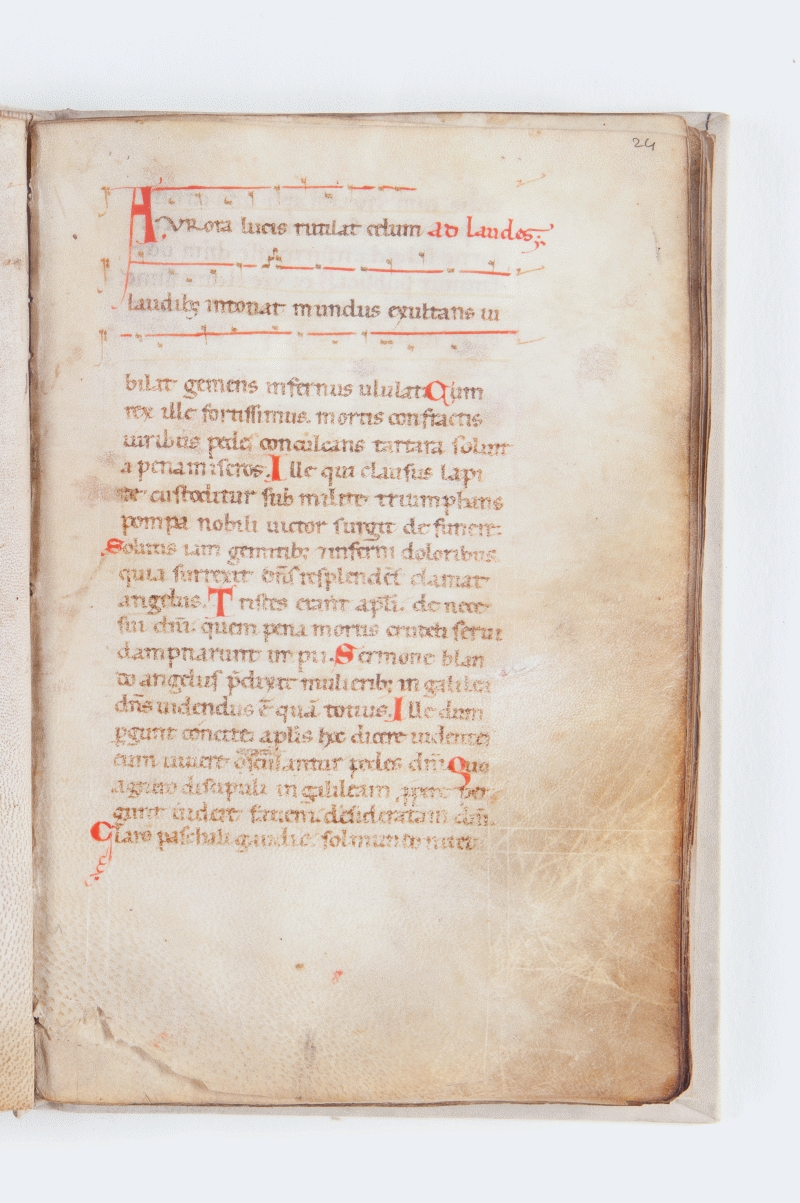 24
AURora lucis rutilat celum ad laudes;
laudibꝫ intonat mundus exultans iu
bilat gemens infernus ululat. Cum
rex ille fortissimus. mortis confractis
uiribus pede conculcans tartara soluit
a pena miseros. Ille qui clausus lapi
de custoditur sub milite triumphans
pompa nobili uictor surgit de funere.
Solutis iam gemitibꝫ ⁊ inferni doloribus.
quia surrexit dn̄s resplendēs clamat
angelus. Tristes erant apl̄i. de nece
sui dn̄i. quem pena mortis crudeli serui
dampnarunt impii. Sermone blan
do angelus p̄dixit mulieribꝫ in galilea
dn̄s uidendus ē quā totius. Ille dum
ꝑgunt concite aplis hec dicere uidentes
eum uiuere osculantur pedes dn̄i Quo
agnito discipuli in galileam ꝓpere per
gunt uidere faciem desideratam dn̄i.
Claro paschali gaudio. sol mundo nitet